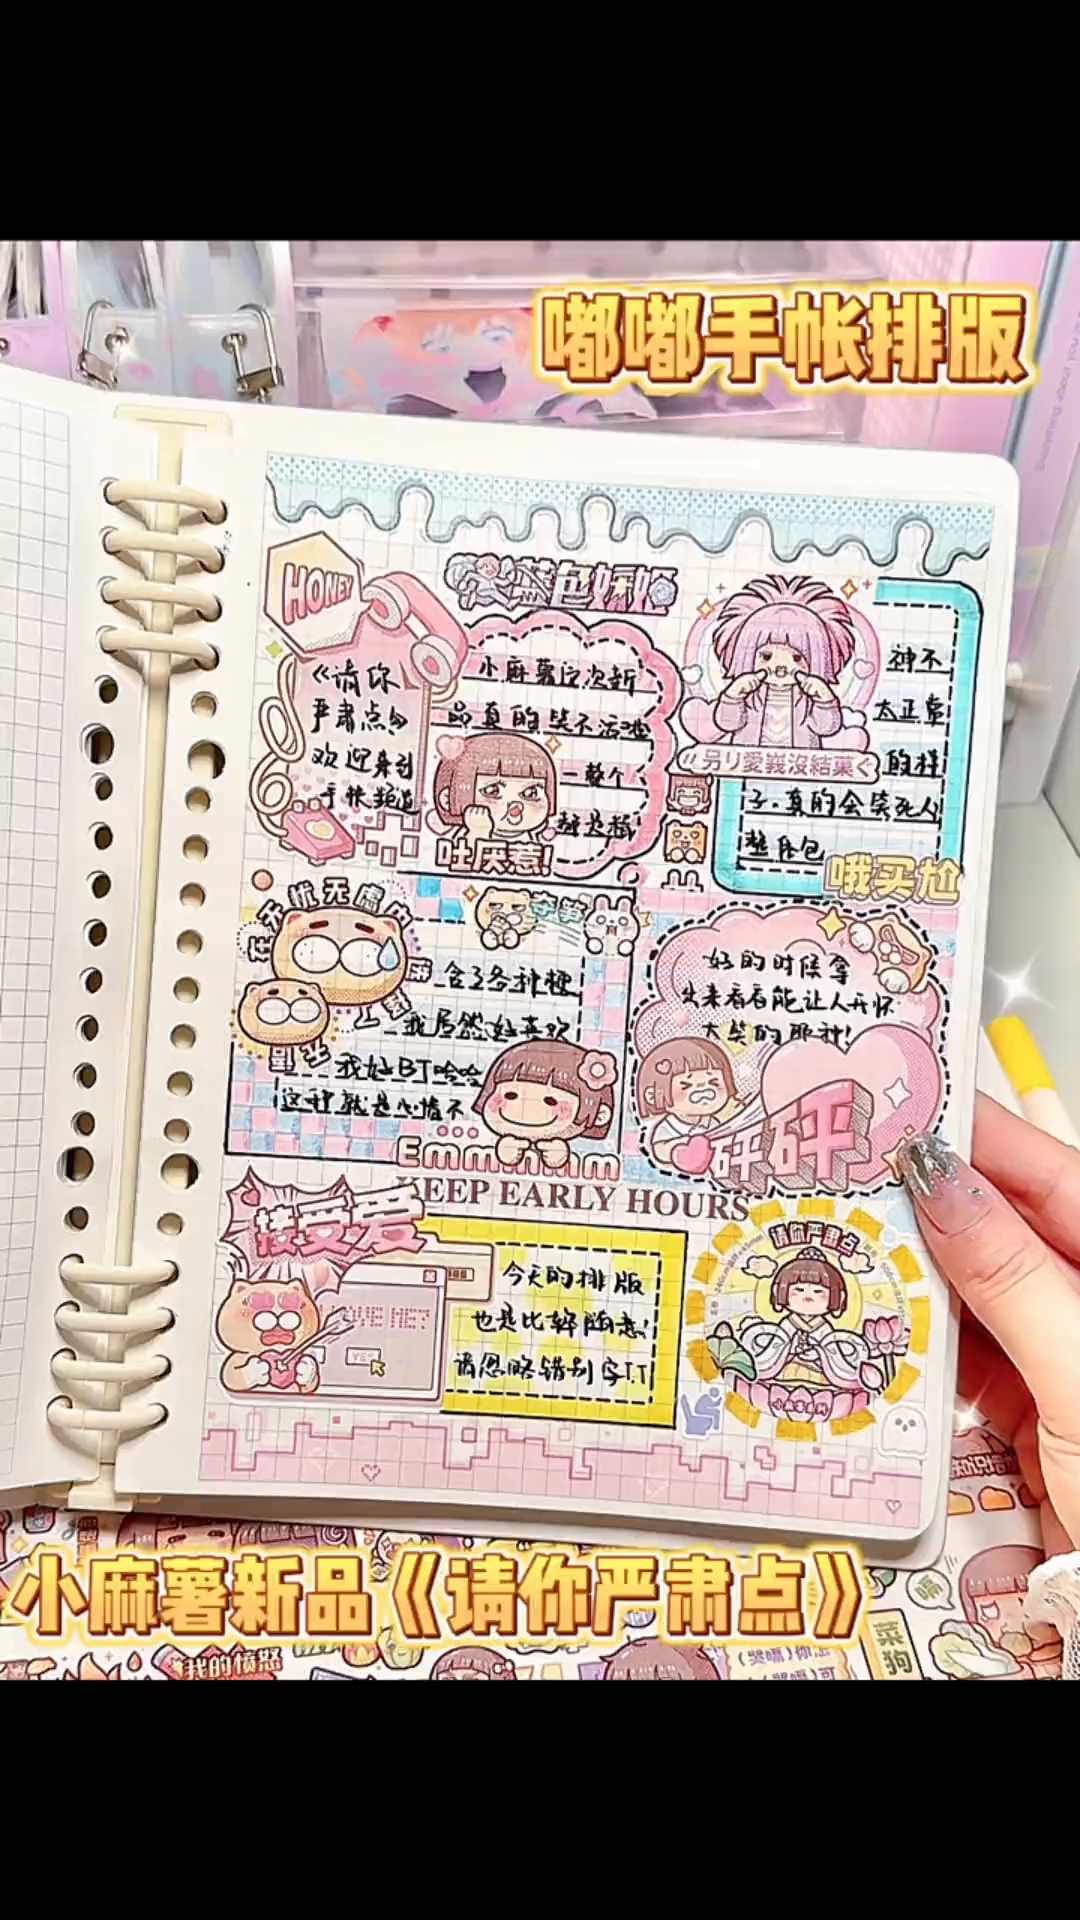 嘟嘟手帐排版
HONEY
《请你
严肃点》
欢迎来到
手帐频道
小麻薯这次新
品真的笑不活啦
一整个
吐厌惹!
神不
太正常
的样
子。真的会笑死人
另リ愛峩沒結菓ぐ
整床包
哦买尬
无忧无虑
夺笋
含了各种梗
我居然好喜欢
我好BT哈哈
这种就是心情不
Emmmmm
好的时候拿
出来看看能让人开怀
大笑的那种!
砰砰
KEEP EARLY HOURS
接受爱
LOVE ME?
YES
今天的排版
也是比较随意!
请忽略错别字T.T
请你严肃点
小麻薯新品《请你严肃点》
我的愤怒
菜狗